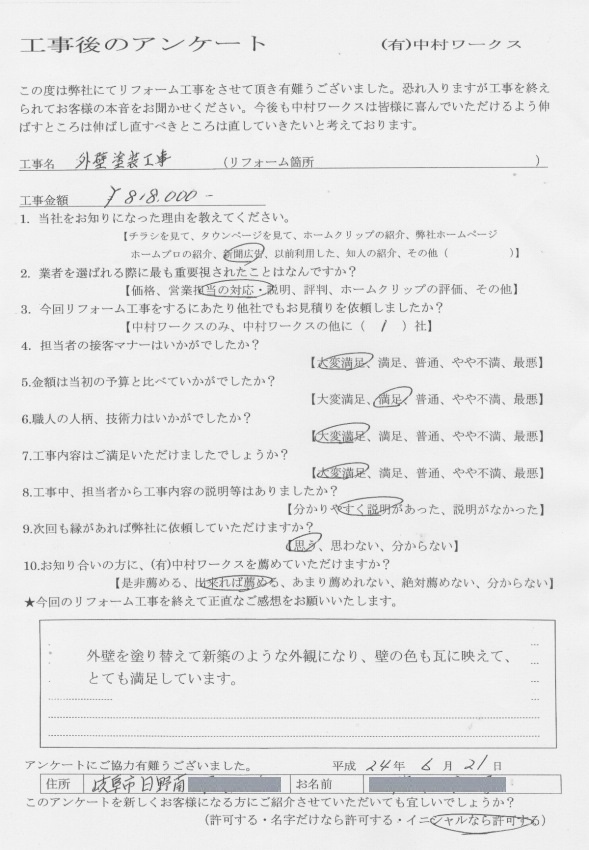 工事後のアンケート (有)中村ワークス
この度は弊社にてリフォーム工事をさせて頂き有難うございました。恐れ入りますが工事を終え
られてお客様の本音をお聞かせください。今後も中村ワークスは皆様に喜んでいただけるよう伸
ばすところは伸ばし直すべきところは直していきたいと考えております。
工事名 外壁塗装工事 (リフォーム箇所 )
工事金額 ¥818.000-
1. 当社をお知りになった理由を教えてください。
【チラシを見て、タウンページを見て、ホームクリップの紹介、弊社ホームページ
ホームプロの紹介、新聞広告、以前利用した、知人の紹介、その他( )】
2. 業者を選ばれる際に最も重要視されたことはなんですか?
【価格、営業担当の対応・説明、評判、ホームクリップの評価、その他】
3. 今回リフォーム工事をするにあたり他社でもお見積りを依頼しましたか?
【中村ワークスのみ、中村ワークスの他に( 1 )社】
4. 担当者の接客マナーはいかがでしたか?
【大変満足、満足、普通、やや不満、最悪】
5.金額は当初の予算と比べていかがでしたか?
【大変満足、満足、普通、やや不満、最悪】
6.職人の人柄、技術力はいかがでしたか?
【大変満足、満足、普通、やや不満、最悪】
7.工事内容はご満足いただけましたでしょうか?
【大変満足、満足、普通、やや不満、最悪】
8.工事中、担当者から工事内容の説明等はありましたか?
【分かりやすく説明があった、説明がなかった】
9.次回も縁があれば弊社に依頼していただけますか?
【思う、思わない、分からない】
10.お知り合いの方に、(有)中村ワークスを薦めていただけますか?
【是非薦める、出来れば薦める、あまり薦めれない、絶対薦めない、分からない】
★今回のリフォーム工事を終えて正直なご感想をお願いいたします。
外壁を塗り替えて新築のような外観になり、壁の色も瓦に映えて、
とても満足しています。
アンケートにご協力有難うございました。 平成 24年 6月 21日
住所 岐阜市日野南 お名前
このアンケートを新しくお客様になる方にご紹介させていただいても宜しいでしょうか?
(許可する・名字だけなら許可する・イニシャルなら許可する)